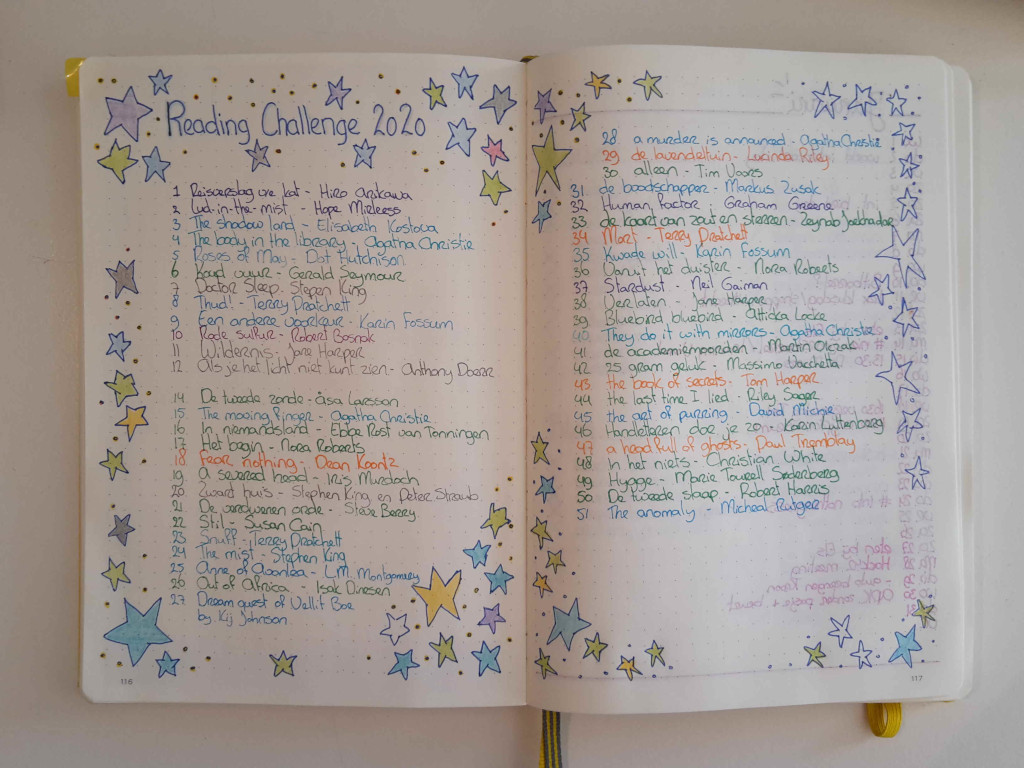 Reading Challenge 2020
1 Reisverslag vre kat - Hiro Arikawa
2 Lud-in-the-mist - Hope Mirleess
3 The shadow land - Elisabeth Kostova
4 The body in the library - Agatha Christie
5 Roses of May - Dot Hutchison
6 Koud vuur - Gerald Seymour
7 Doctor Sleep - Stepen King
8 Thud! - Terry Pratchett
9 Een andere voorkeur - Karin Fossum
10 Rode sulfur - Robert Bosnak
11 Wildernis - Jane Harper
12 Als je het licht niet kunt zien - Anthony Doerr
14 De tweede zonde - åsa Larsson
15 The moving finger - Agatha Christie
16 In niemandsland - Ebbe Rost van Tonningen
17 Het begin - Nora Roberts
18 fear nothing - Dean Koontz
19 a severed head - Iris Murdoch
20 Zwart huis - Stephen King en Peter Straub
21 De verdwenen orde - Steve Berry
22 Stil - Susan Cain
23 Snuff - Terry Pratchett
24 The mist - Stephen King
25 Anne of Avonlea - L.M. Montgomery
26 Out of Africa - Isak Dinesen
27 Dream quest of Vellit Boe
by Kij Johnson
116
28 a murder is announced - Agatha Christie
29 de lavendeltuin - Lucinda Riley
30 alleen - Tim Voors
31 de boodschapper - Markus Zusak
32 Human factor - Graham Greene
33 de kaart van zout en sterren - Zeynab
34 Mort - Terry Pratchett
35 Kwade wil - Karin Fossum
36 Vanuit het duister - Nora Roberts
37 Stardust - Neil Gaiman
38 Verlaten - Jane Harper
39 Bluebird bluebird - Attica Locke
40 They do it with mirrors - Agatha Christie
41 de academiemoorden - Martin Olczak
42 25 gram geluk - Massimo Vacchetta
43 the book of secrets - Tom Harper
44 the last time I lied - Riley Sager
45 the art of purring - David Michie
46 Handletteren doe je zo - Karin Luttenberg
47 a head full of ghosts - Paul Tremblay
48 in het niets - Christian White
49 Hygge - Marie Tourell Søderberg
50 De tweede slaap - Robert Harris
51 The anomaly - Micheal Rutger
117